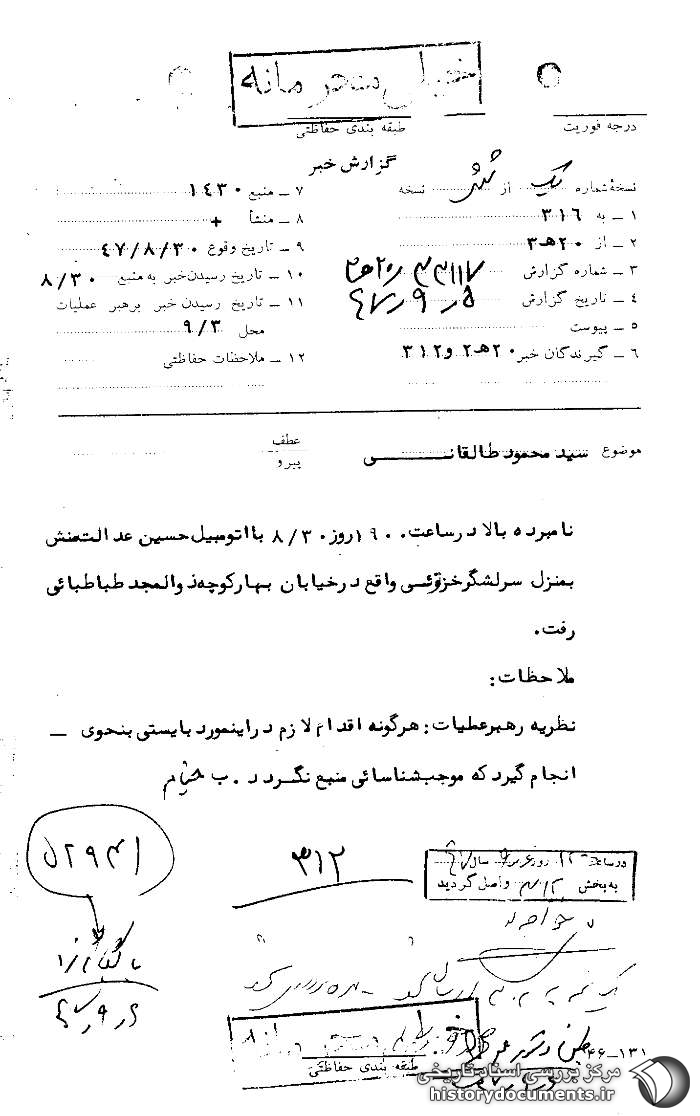 خیلی محرمانه
طبقه بندی حفاظتی
درجه فوریت
گزارش خبر
نسخهٔ شماره یک از شش نسخه
۱ ـ به ۳۱۶
۲ ـ از ۲۰هـ۳
۳ ـ شماره گزارش
۴ ـ تاریخ گزارش ۴۷/۹/۵
۵ ـ پیوست
۶ ـ گیرندگان خبر ۲۰هـ۲ و ۳۱۲
۷ ـ منبع ۱۴۳۰
۸ ـ منشأ +
۹ ـ تاریخ وقوع ۴۷/۸/۳۰
۱۰ ـ تاریخ رسیدن خبر به منبع ۸/۳۰
۱۱ ـ تاریخ رسیدن خبر برهبر عملیات
محل ۹/۳
۱۲ ـ ملاحظات حفاظتی
موضوع سید محمود طالقانــــــی
عطف
پیرو
نامبرده بالا در ساعت ۱۹۰۰ روز ۸/۳۰ با اتومبیل حسین عدالت‌منش
بمنزل سرلشگر واقع در خیابان بهار کوچه ذوالمجد طباطبائی
رفت.
ملاحظات:
نظریه رهبر عملیات: هرگونه اقدام لازم در اینمورد بایستی بنحوی ـ
انجام گیرد که موجب شناسائی منبع نگردد. ب
۳۱۲
در ساعت روز سال
به بخش ۳۱۲ واصل گردید
طبقه بندی حفاظتی
۴۶-۱۳۱
مرکز بررسی اسناد تاریخی
historydocuments.ir